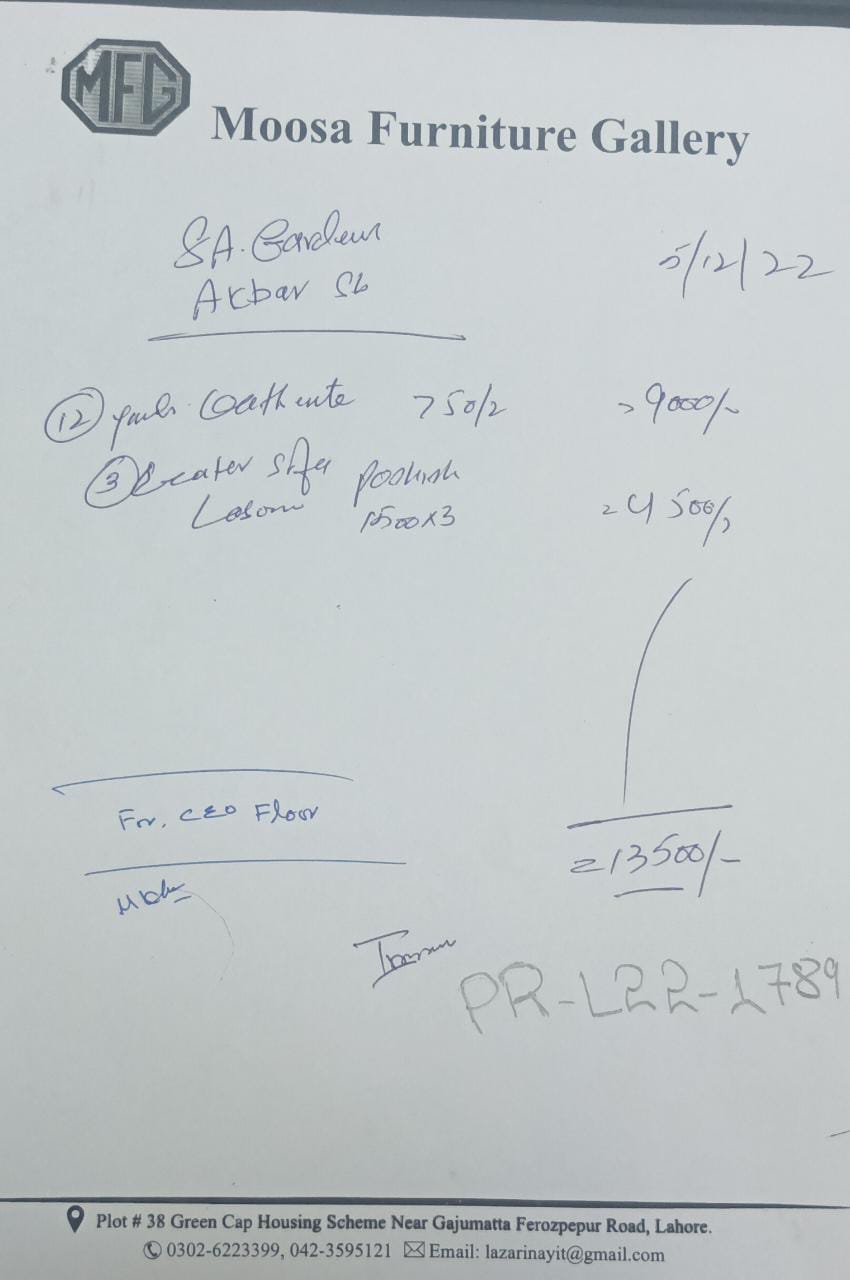 MFG
Moosa Furniture Gallery
S.A. Gardens
5/12/22
Akbar Sb
12 750/2 9000/-
3 Seater Sofa Poshish
1500x3 = 4500/-
For, CEO Floor
= 13500/-
PR-L22-1789
Plot # 38 Green Cap Housing Scheme Near Gajumatta Ferozpepur Road, Lahore.
0302-6223399, 042-3595121 Email: lazarinayit@gmail.com